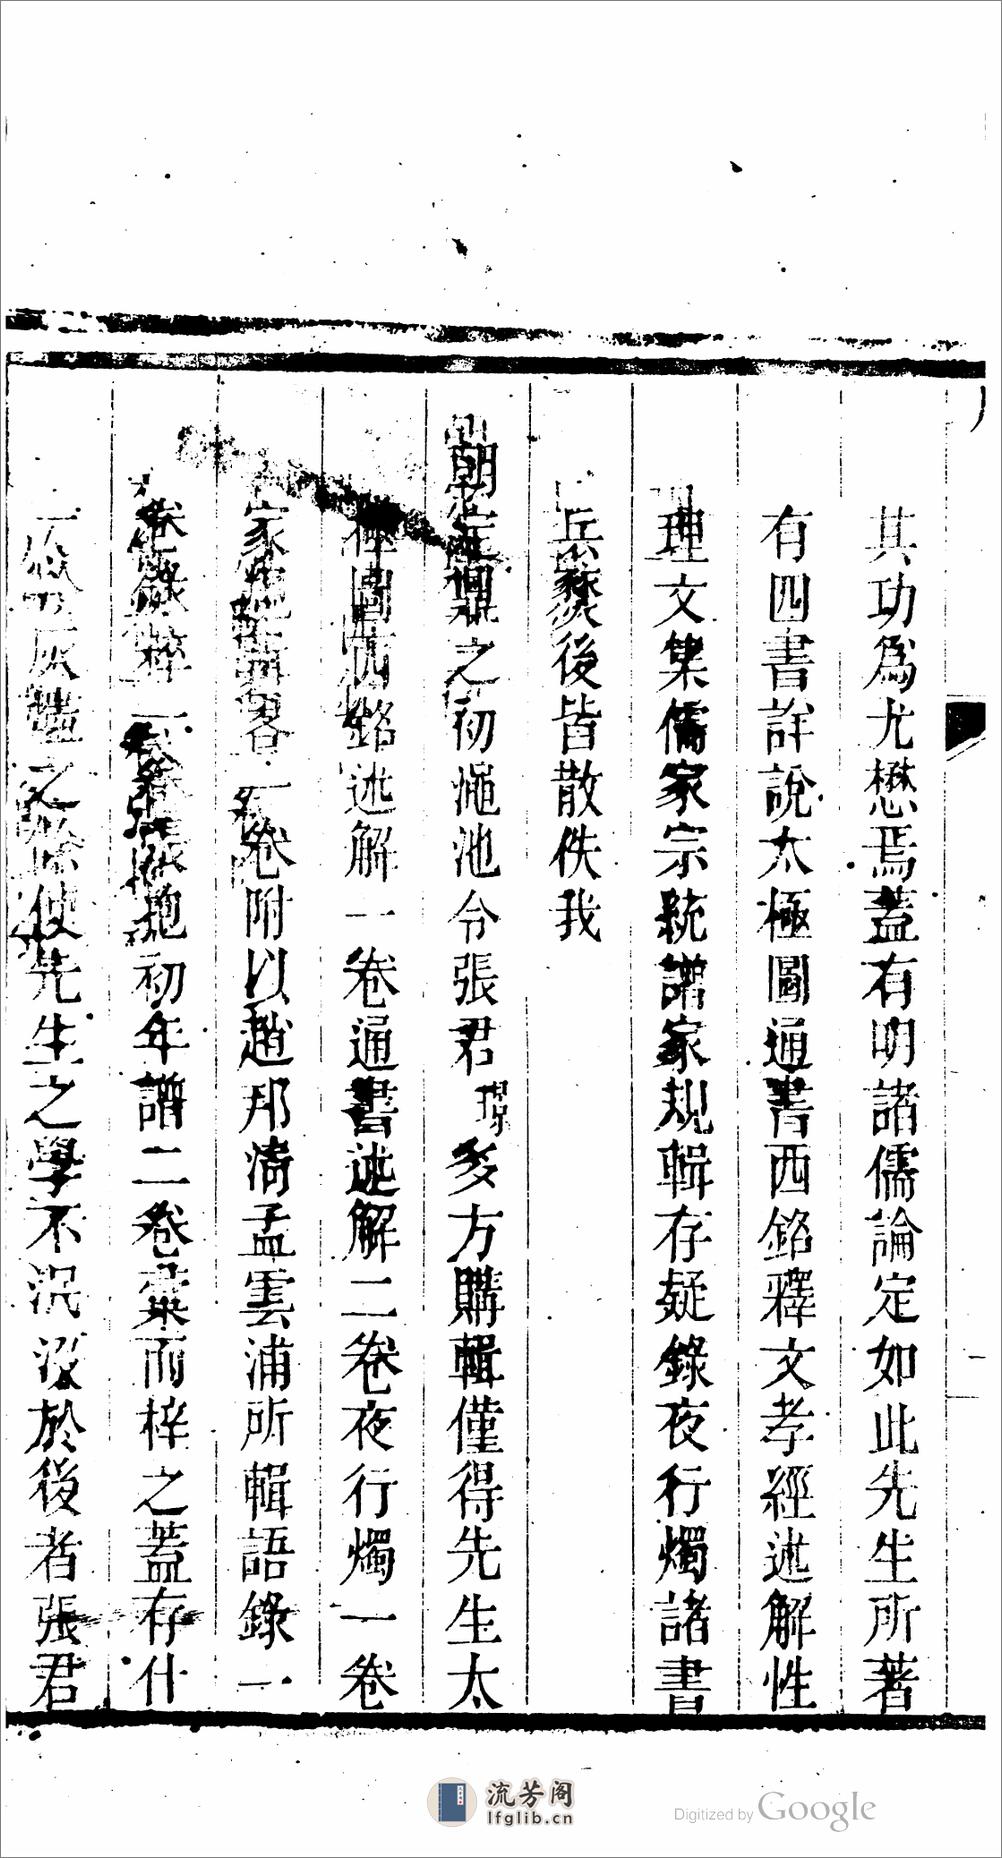 其功爲尤懋焉蓋有明諸儒論定如此先生所著
有四書詳說太極圖通書西銘釋文孝經述解性
理文集儒家宗統譜家規輯存疑錄夜行燭諸書
兵燹後皆散佚我
朝定鼎之初澠池令張君璟多方購輯僅得先生太
極圖西銘述解一卷通書述解二卷夜行燭一卷
家規輯畧一卷附以趙邦淸孟雲浦所輯語錄一
卷錄粹一卷張抱初年譜二卷彙而梓之蓋存什
一於灰燼之餘使先生之學不泯沒於後者張君
流芳阁
lfglib.cn
Digitized by Google